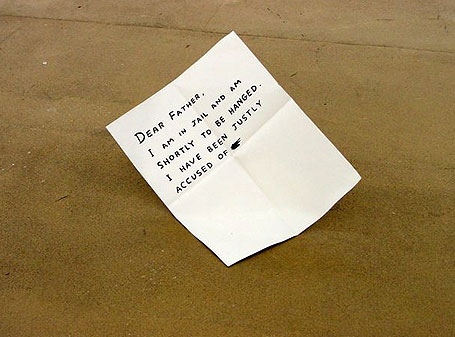 DEAR FATHER,
I AM IN JAIL AND AM
SHORTLY TO BE HANGED.
I HAVE BEEN JUSTLY
ACCUSED OF